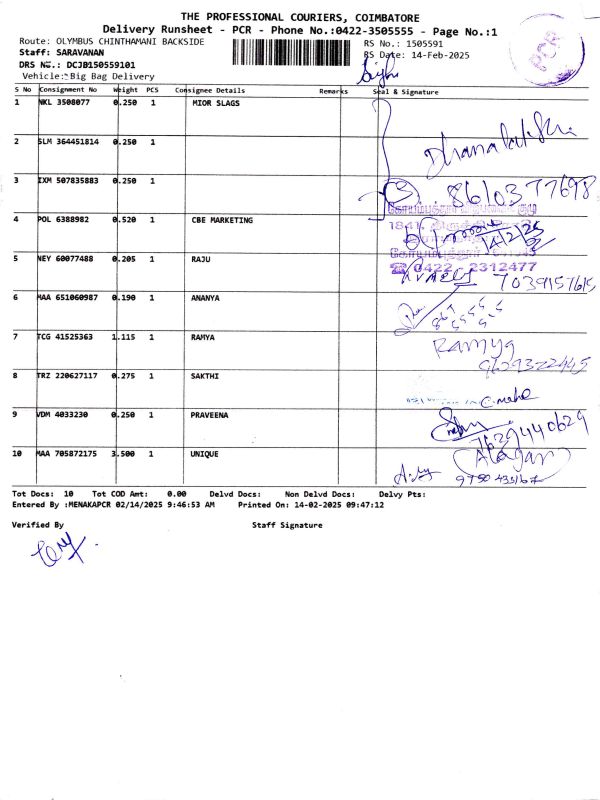 THE PROFESSIONAL COURIERS, COIMBATORE
Delivery Runsheet - PCR - Phone No.:0422-3505555 - Page No.:1
Route: OLYMBUS CHINTHAMANI BACKSIDE
RS No.: 1505591
Staff: SARAVANAN
RS Date: 14-Feb-2025
DRS NO.: DCJB150559101
Vehicle: Big Bag Delivery
PCR
S No Consignment No Weight PCS Consignee Details Remarks Seal & Signature
1 NKL 3508077 0.250 1 MIOR SLAGS
2 SLM 364451814 0.250 1
Dhanalakshmi
3 IXM 507835883 0.250 1
8610377698
4 POL 6388982 0.520 1 CBE MARKETING
14/2/25
5 NEY 60077488 0.205 1 RAJU
☎ 0422 2312477
7039157615
6 MAA 651060987 0.190 1 ANANYA
7 TCG 41525363 1.115 1 RAMYA
Ramya
9629322445
8 TRZ 220627117 0.275 1 SAKTHI
9 VDM 4033230 0.250 1 PRAVEENA
7629440629
10 MAA 705872175 3.500 1 UNIQUE
Alagar
Tot Docs: 10 Tot COD Amt: 0.00 Delvd Docs: Non Delvd Docs: Delvy Pts:
Entered By :MENAKAPCR 02/14/2025 9:46:53 AM Printed On: 14-02-2025 09:47:12
Verified By Staff Signature